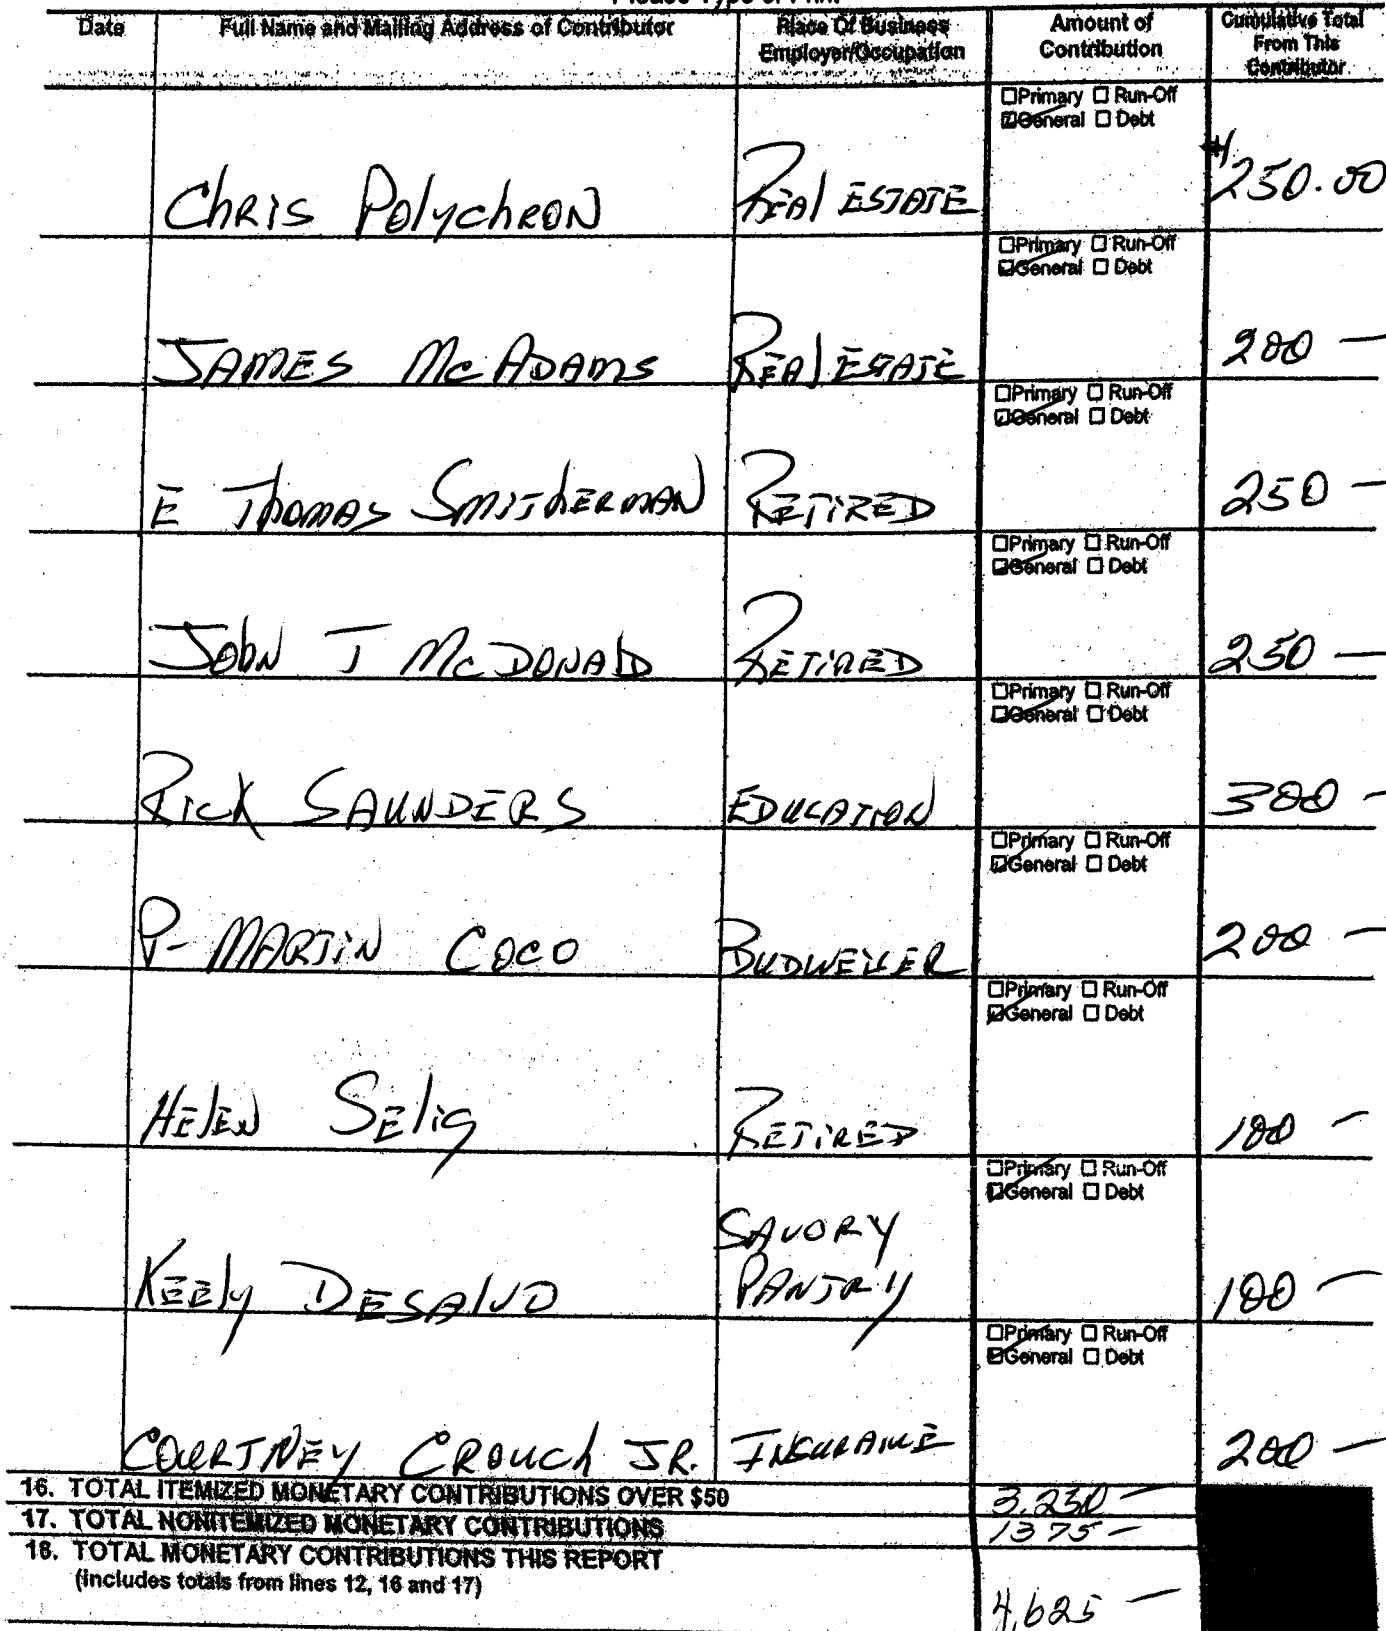 Date Full Name and Mailing Address of Contributor Place Of Business Employer/Occupation Amount of Contribution Cumulative Total From This Contributor
☐Primary ☐ Run-Off
☑General ☐ Debt
Chris Polychron Real Estate $250.00
☐Primary ☐ Run-Off
☑General ☐ Debt
James McAdams Real Estate 200 —
☐Primary ☐ Run-Off
☑General ☐ Debt
E Thomas Smitherman Retired 250 —
☐Primary ☐ Run-Off
☑General ☐ Debt
John T McDonald Retired 250 —
☐Primary ☐ Run-Off
☑General ☐ Debt
Rick Saunders Education 300 —
☐Primary ☐ Run-Off
☑General ☐ Debt
P- Martin Coco Budweiser 200 —
☐Primary ☐ Run-Off
☑General ☐ Debt
Helen Selig Retired 100 —
☐Primary ☐ Run-Off
☑General ☐ Debt
Savory
Keely DeSalvo Pantry 100 —
☐Primary ☐ Run-Off
☑General ☐ Debt
Courtney Crouch Jr. Insurance 200 —
16. TOTAL ITEMIZED MONETARY CONTRIBUTIONS OVER $50 3,250 —
17. TOTAL NONITEMIZED MONETARY CONTRIBUTIONS 1375 —
18. TOTAL MONETARY CONTRIBUTIONS THIS REPORT
(includes totals from lines 12, 16 and 17)
4,625 —